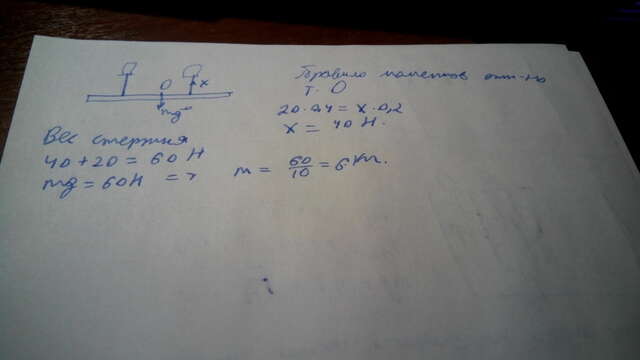 O
x
mg
Правило моментов отн-но
т. O
20·0,4 = x·0,2
x = 40 Н.
Вес стержня
40+20 = 60 Н
mg = 60Н =>
m = 60/10 = 6 кг.